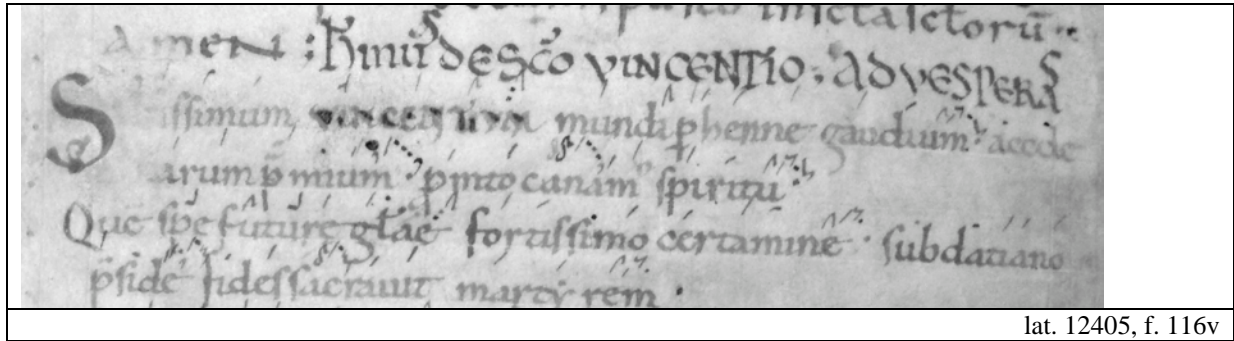 sctorū
AMEN : Hinus DE SCO VINCENTIO. AD VESPERAS
ssimum vincentium mundi phenne gaudium
arum p̄mium pinto canam spiritu
Que spe future glāe fortissimo certamine subdatiano
p̄side fides sacrauit martyrem
lat. 12405, f. 116v